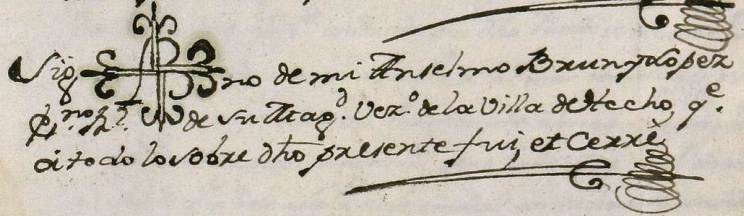 Sig no de mi Anselmo Brun y Lopez
Es.no R.l de Su Mag.d Vez.o de la Villa de Hecho, q.e
à todo lo sobre dho presente fui, et Cerré